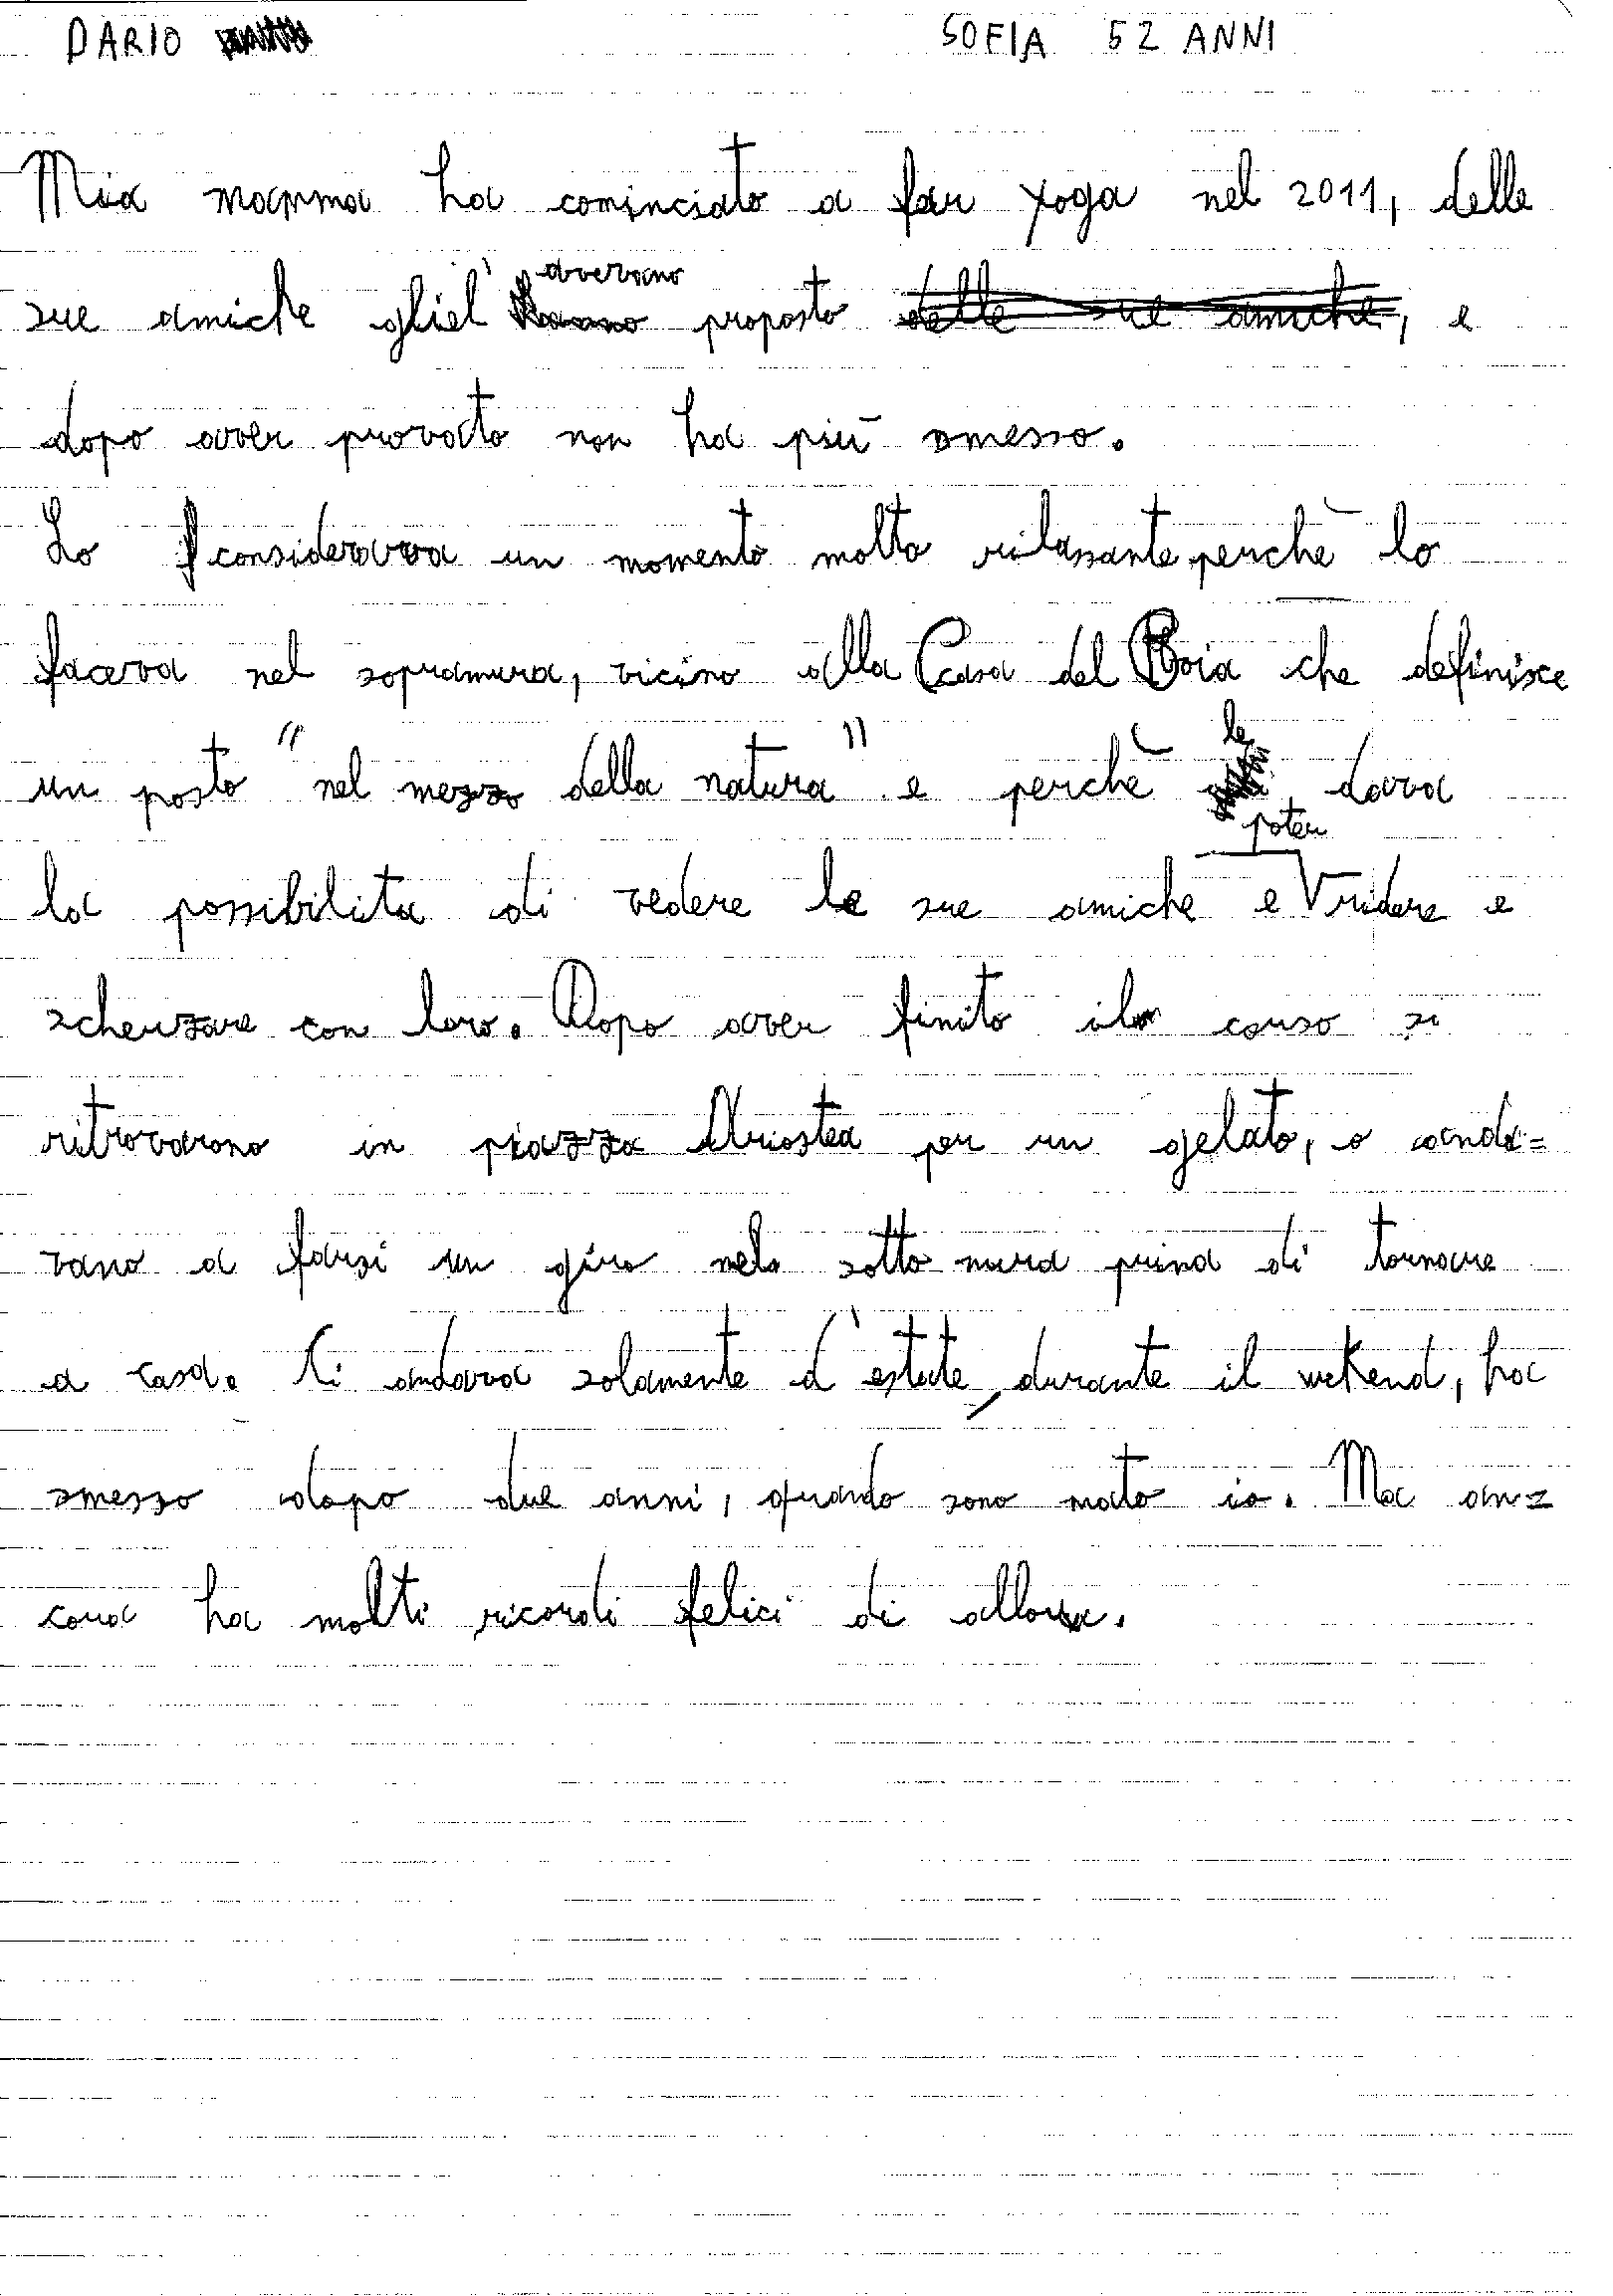 DARIO SOFIA 52 ANNI
Mia mamma ha cominciato a far yoga nel 2011, delle
sue amiche gliel' avevano proposto delle sue amiche, e
dopo aver provato non ha più smesso.
Lo considerava un momento molto rilassante perchè lo
faceva nel sopramura, vicino alla Casa del Boia che definisce
un posto "nel mezzo della natura" e perchè le dava
la possibilita di vedere le sue amiche e poter ridere e
scherzare con loro. Dopo aver finito il corso si
ritrovarono in piazza Ariostea per un gelato, o anda=
vano a farsi un giro nel sotto mura prima di tornare
a casa. Ci andava solamente d'estate, durante il wekend, ha
smesso dopo due anni, quando sono nato io. Ma an=
cora ha molti ricordi felici di allora.